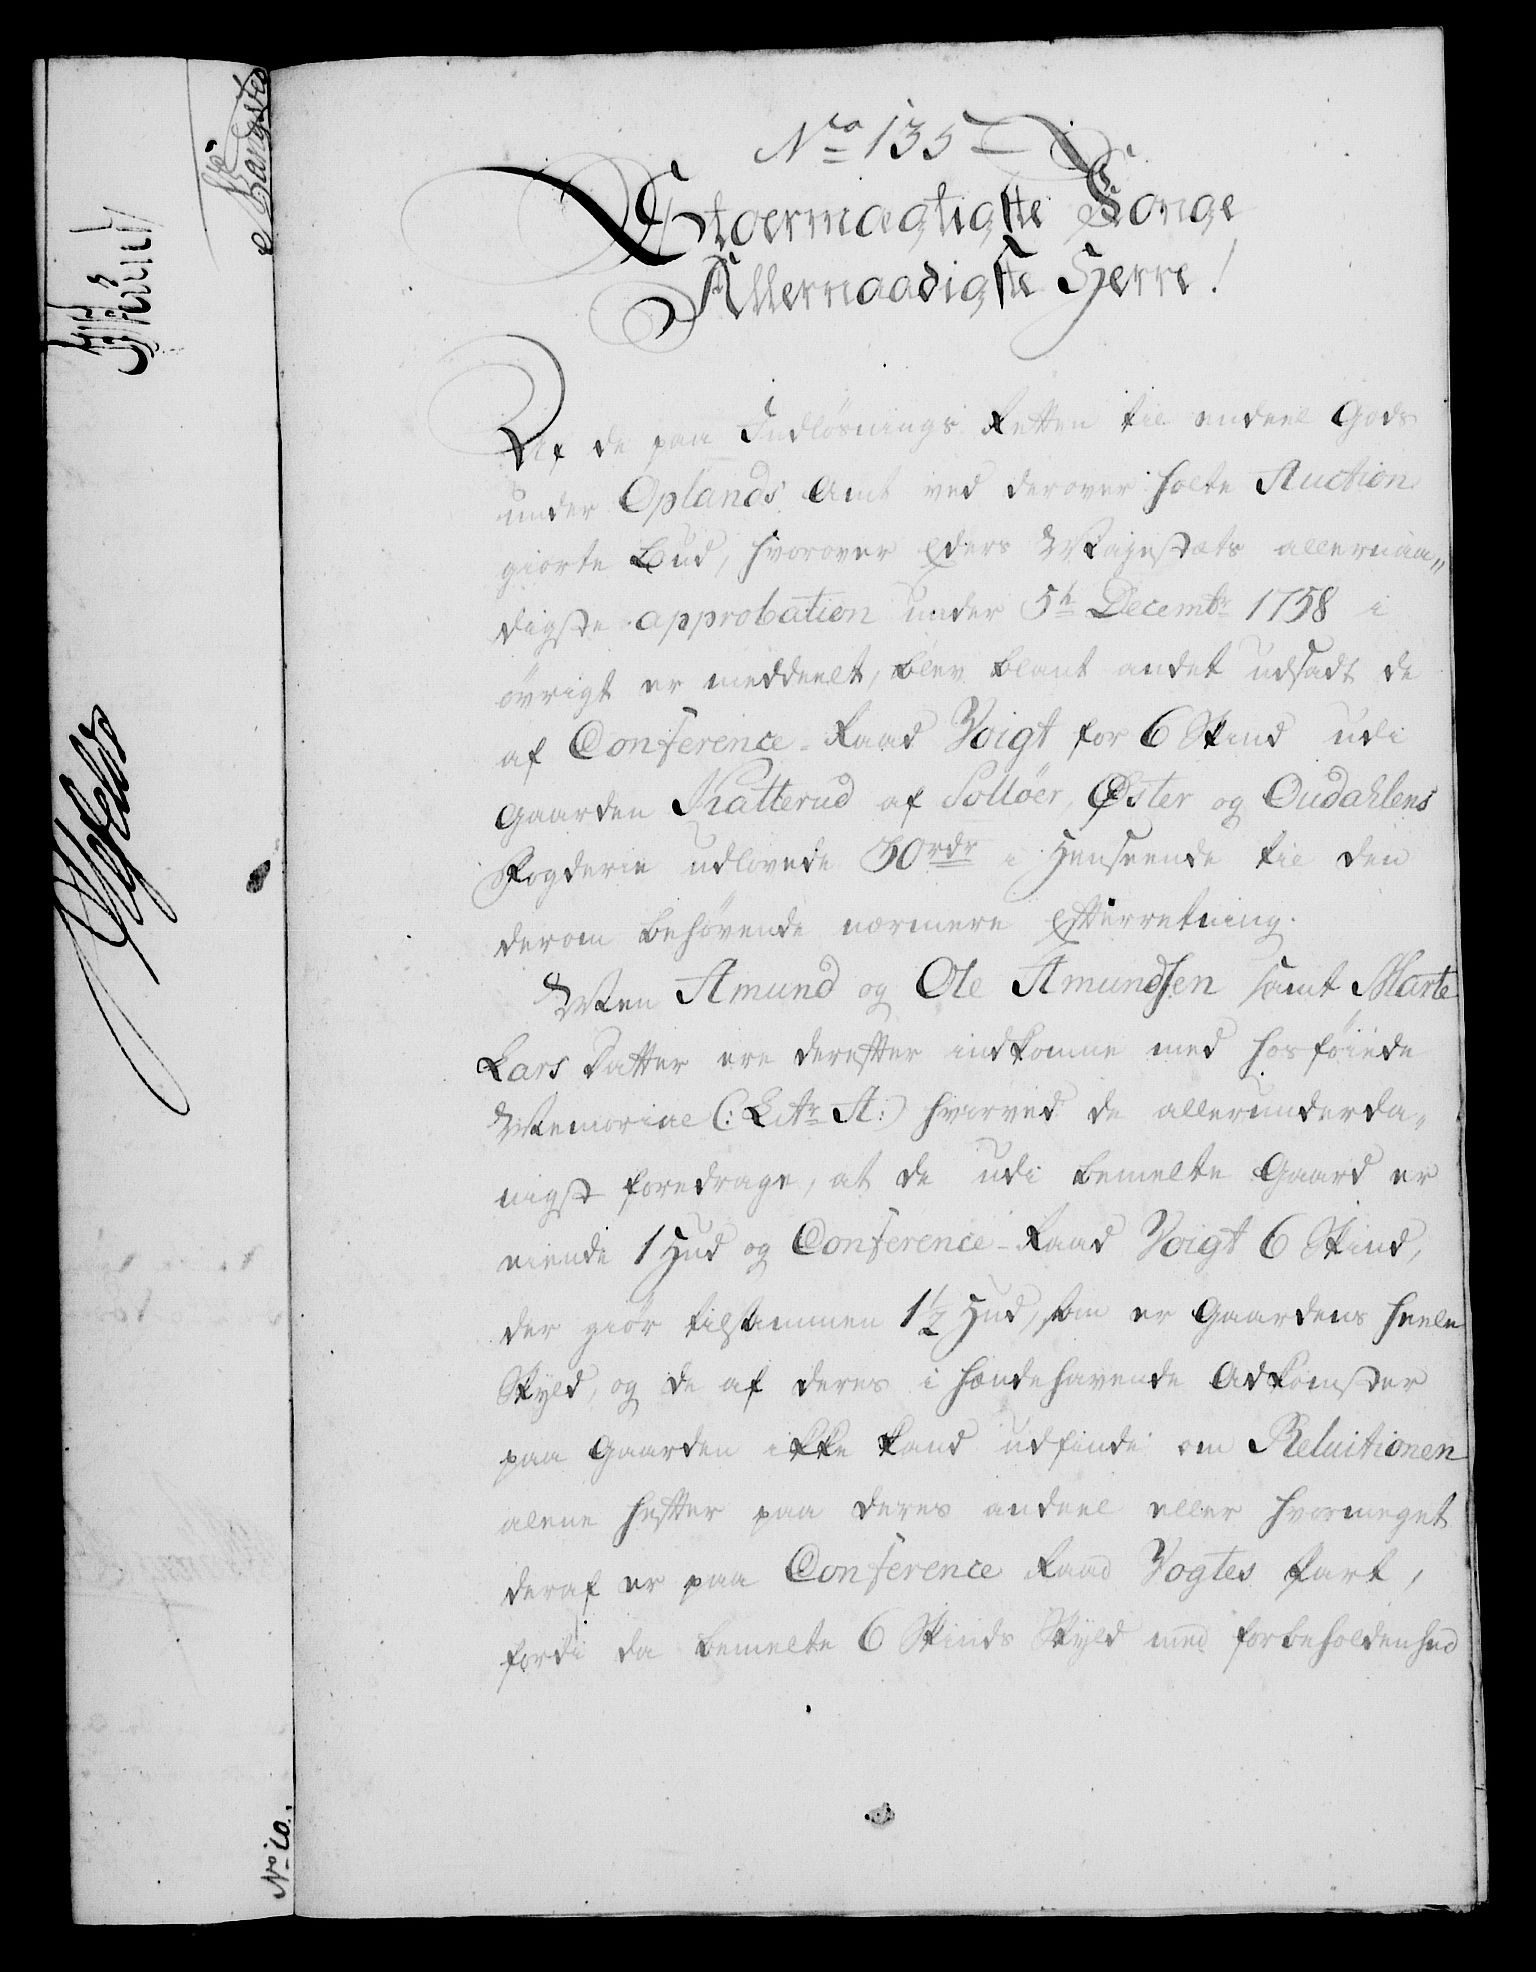 No 135
Stoermægtigste Konge
Allernaadigste Herre!
Af de paa Indløsnings Retten til endeel Gods
under Oplands Amt ved derover holte Auction
giorte Bud, hvorover Eders Majestæts allernaa„
digste approbation under 5te Decembr 1758 i
øvrigt er meddeelt, blev blant andet udsadt de
af Conference-Raad Voigt for 6 Skind udi
Gaarden Katterud af Solløer, Øster og Oudahlens
Fogderie udlovede 30 rdr i Henseende til den
derom behøvende nærmere Efterretning.
Men Amund og Ole Amundsen samt Marte
Lars Datter ere derefter indkomne med hosføiede
Memorial (: Litr A:) hvorved de allerunderda„
nigst foredrage, at de udi bemelte Gaard er
eiende 1 Hud og Conference-Raad Voigt 6 Skind,
der giør tilsammen 1½ Hud, som er Gaardens heele
Skyld, og de af deres i hændehavende Adkomster
paa Gaarden ikke kand udfinde om Reluitionen
alene hefter paa deres andeel eller hvormeget
deraf er paa Conference Raad Vogtes Part,
fordi da bemelte 6 Skinds Skyld med forbeholdenhed
No 20.